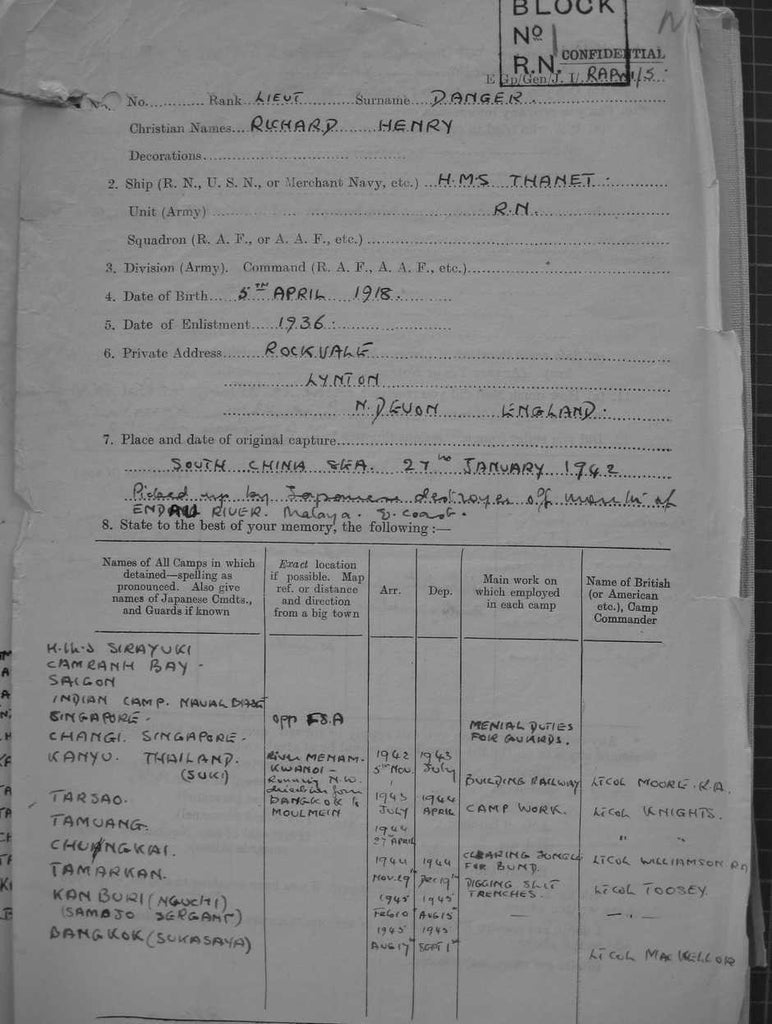 BLOCK
No
R.N.
CONFIDENTIAL
E Gp/Gen/J. I/ RAPWI/S.
No. Rank LIEUT Surname DANGER.
Christian Names RICHARD HENRY
Decorations
2. Ship (R. N., U. S. N., or Merchant Navy, etc.) H.M.S THANET.
Unit (Army) R.N.
Squadron (R. A. F., or A. A. F., etc.)
3. Division (Army). Command (R. A. F., A. A. F., etc.)
4. Date of Birth 5TH APRIL 1918.
5. Date of Enlistment 1936.
6. Private Address ROCKVALE
LYNTON
N. DEVON ENGLAND.
7. Place and date of original capture
SOUTH CHINA SEA. 27th JANUARY 1942
Picked up by Japanese destroyer off mouth of
RIVER. Malaya. E. Coast.
8. State to the best of your memory, the following :—
Names of All Camps in which detained—spelling as pronounced. Also give names of Japanese Cmdts., and Guards if known
Exact location if possible. Map ref. or distance and direction from a big town
Arr.
Dep.
Main work on which employed in each camp
Name of British (or American etc.), Camp Commander
SIRAYUKI
CAMRANH BAY -
SAIGON
INDIAN CAMP. NAVAL BASE
SINGAPORE - opp MENIAL DUTIES
CHANGI. SINGAPORE - FOR GUARDS.
KANYU. THAILAND. River MENAM- 1942 1943
(SUKI) KWANOI - 5th Nov. July BUILDING RAILWAY Lt COL MOORE. R.A.
Running N.W.
TARSAO. direction from 1943 1944
BANGKOK to JULY APRIL CAMP WORK. Lt COL KNIGHTS.
TAMUANG. MOULMEIN 1944
27th APRIL " "
CHUNGKAI. 1944 1944 CLEARING JUNGLE Lt COL WILLIAMSON
TAMARKAN. NOV 29th DEC 19th FOR BUND.
KAN BURI (NGUCHI) 1945 1945 DIGGING SLIT Lt COL TOOSEY.
(SAMAJO SERGANT) FEB 10 AUG 15th TRENCHES. — — " —
BANGKOK (SUKASAYA) 1945 1945
AUG 17th SEPT 1st Lt COL MACKELLOR